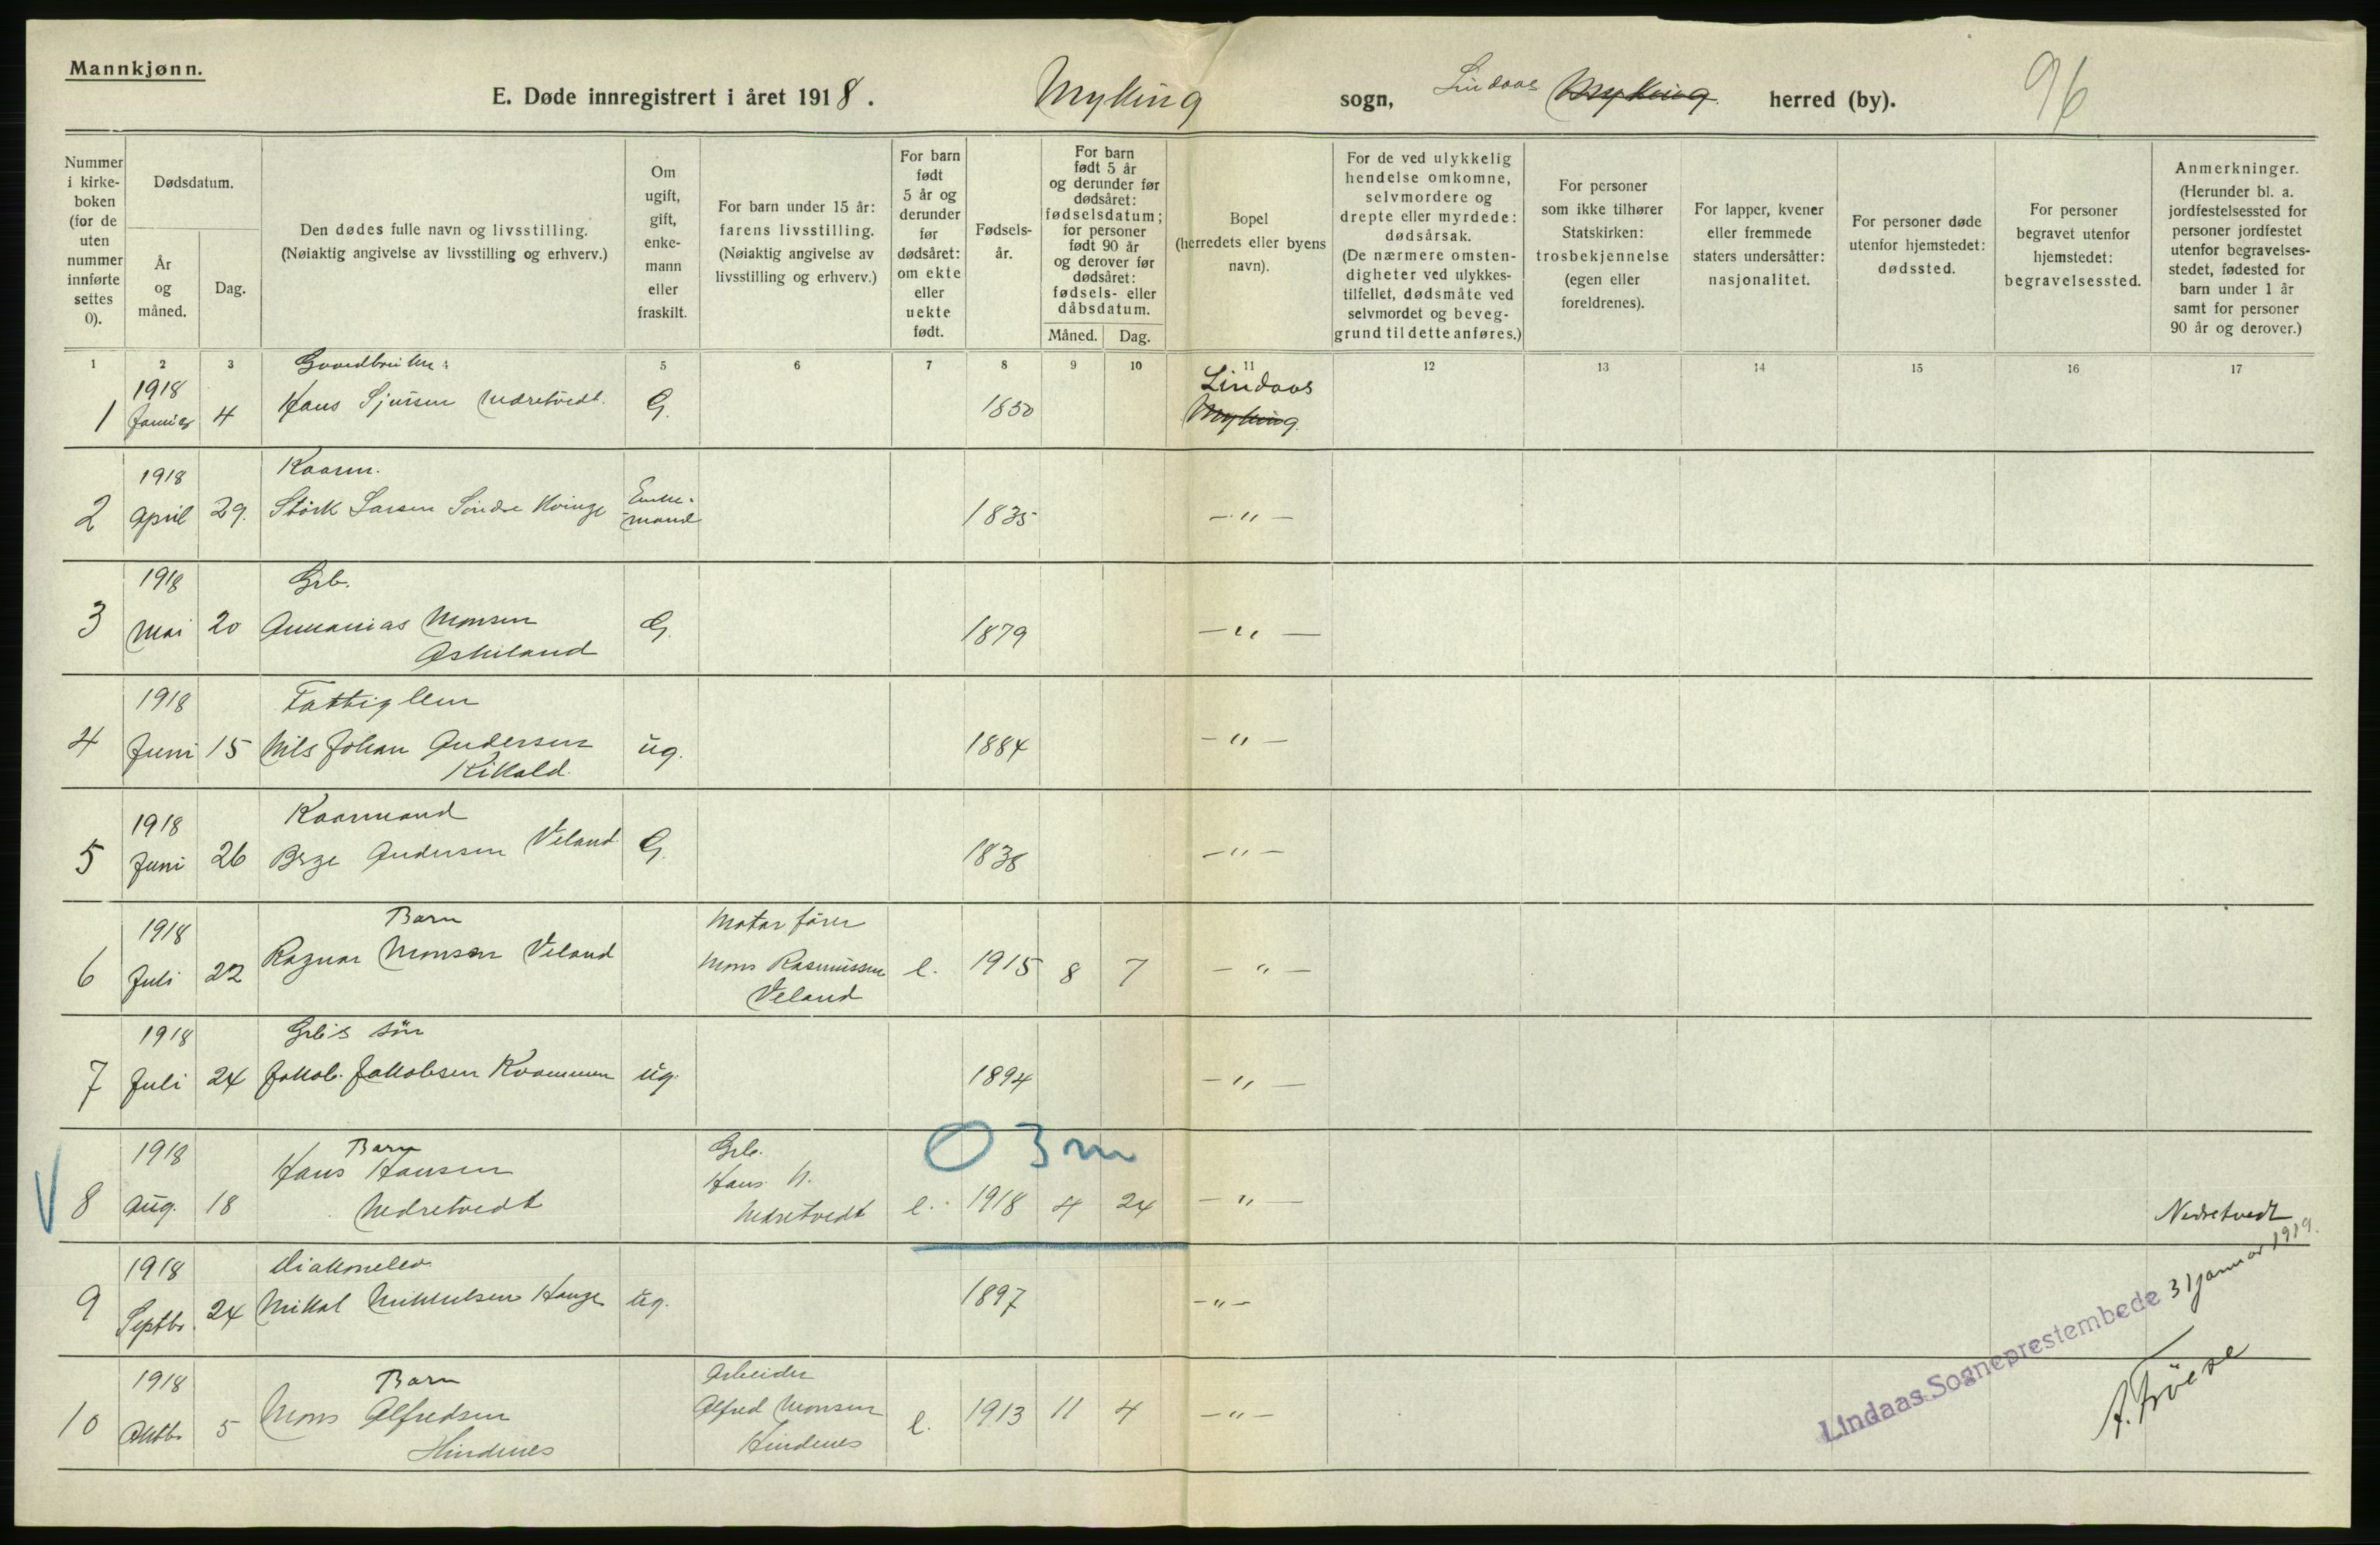 Mannkjønn.
E. Døde innregistrert i året 1918. Myking sogn, Lindaas Myking herred (by). 96
Nummer i kirke- boken (for de uten nummer innførte settes 0).
Dødsdatum.
År og måned.
Dag.
Den dødes fulle navn og livsstilling.
(Nøiaktig angivelse av livsstilling og erhverv.)
Om ugift, gift, enke- mann eller fraskilt.
For barn under 15 år: farens livsstilling. (Nøiaktig angivelse av livsstilling og erhverv.)
For barn født 5 år og derunder før dødsåret: om ekte eller uekte født.
Fødsels- år.
For barn født 5 år og derunder før dødsåret: fødselsdatum; for personer født 90 år og derover før dødsåret: fødsels- eller dåbsdatum.
Måned. Dag.
Bopel (herredets eller byens navn).
For de ved ulykkelig hendelse omkomne, selvmordere og drepte eller myrdede: dødsårsak. (De nærmere omsten- digheter ved ulykkes- tilfellet, dødsmåte ved selvmordet og beveg- grund til dette anføres.)
For personer som ikke tilhører Statskirken: trosbekjennelse (egen eller foreldrenes).
For lapper, kvener eller fremmede staters undersåtter: nasjonalitet.
For personer døde utenfor hjemstedet: dødssted.
For personer begravet utenfor hjemstedet: begravelsessted.
Anmerkninger. (Herunder bl. a. jordfestelsessted for personer jordfestet utenfor begravelses- stedet, fødested for barn under 1 år samt for personer 90 år og derover.)
1 2 3 5 6 7 8 9 10 11 12 13 14 15 16 17
1918 Gaardbruker Lindaas
1 Januar 4 Hans Sjursen Nedretvedt. G. 1850 Myking
1918 Kaarm.
2 April 29. Störk Larsen Söndre Kvinge Enke- mand 1835 —"—
1918 Grb.
3 Mai 20 Annanias Monsen G. 1879 —"—
Askeland
1918 Fattiglem
4 Juni 15 Nils Johan Andersen ug. 1884 —"—
Kikold.
1918 Kaarmand
5 Juni 26 Berge Andersen Veland G. 1838 —"—
1918 Barn Motorfører
6 Juli 22 Ragnar Monsen Veland Mons Rasmussen e. 1915 8 7 —"—
Veland
1918 Grb's sön
7 Juli 24 Jakob Jakobsen Kvammen ug. 1894 —"—
1918 Barn Grb. 0 3 m
V 8 Aug. 18 Hans Hansen Hans N. e. 1918 4 24 —"—
Nedretvedt Nedretvedt Nedretvedt
1918 Diakonelev
9 Septbr. 24 Mikal Mikkelsen Hauge ug. 1897 —"—
1918 Barn Arbeider
10 Oktbr 5 Mons Alfredsen Alfred Monsen e. 1913 11 4 —"—
Hindenes Hindenes
Lindaas Sogneprestembede 31 januar 1919.